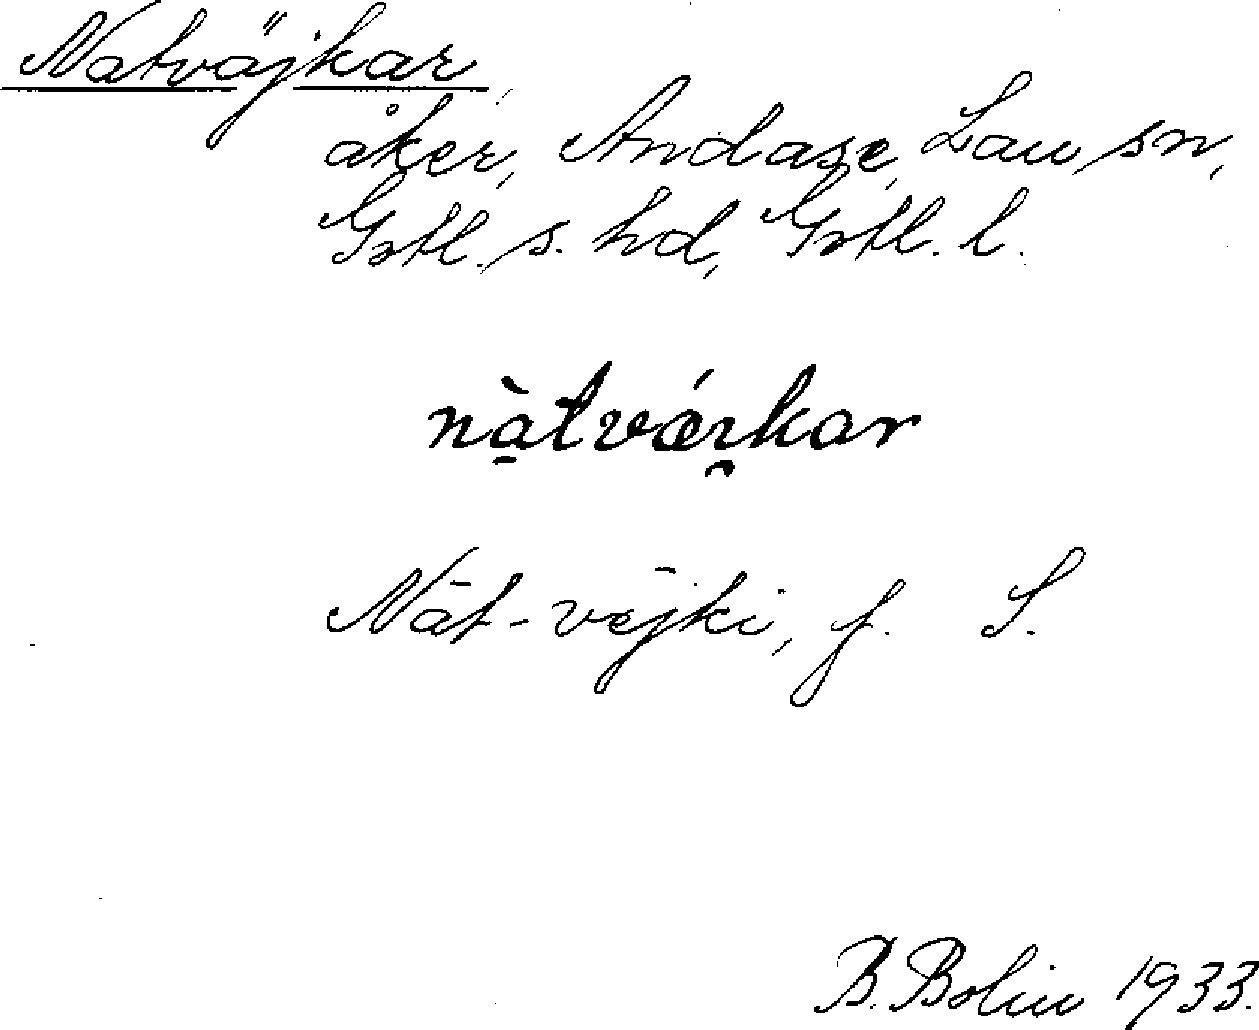 Natväjkar,
åker, Andarve, Lau sn,
Gotl. s. hd, Gotl. l.
nàtvǽı̯kar
Nāt-vējki, f. S.
B. Bolin 1933.